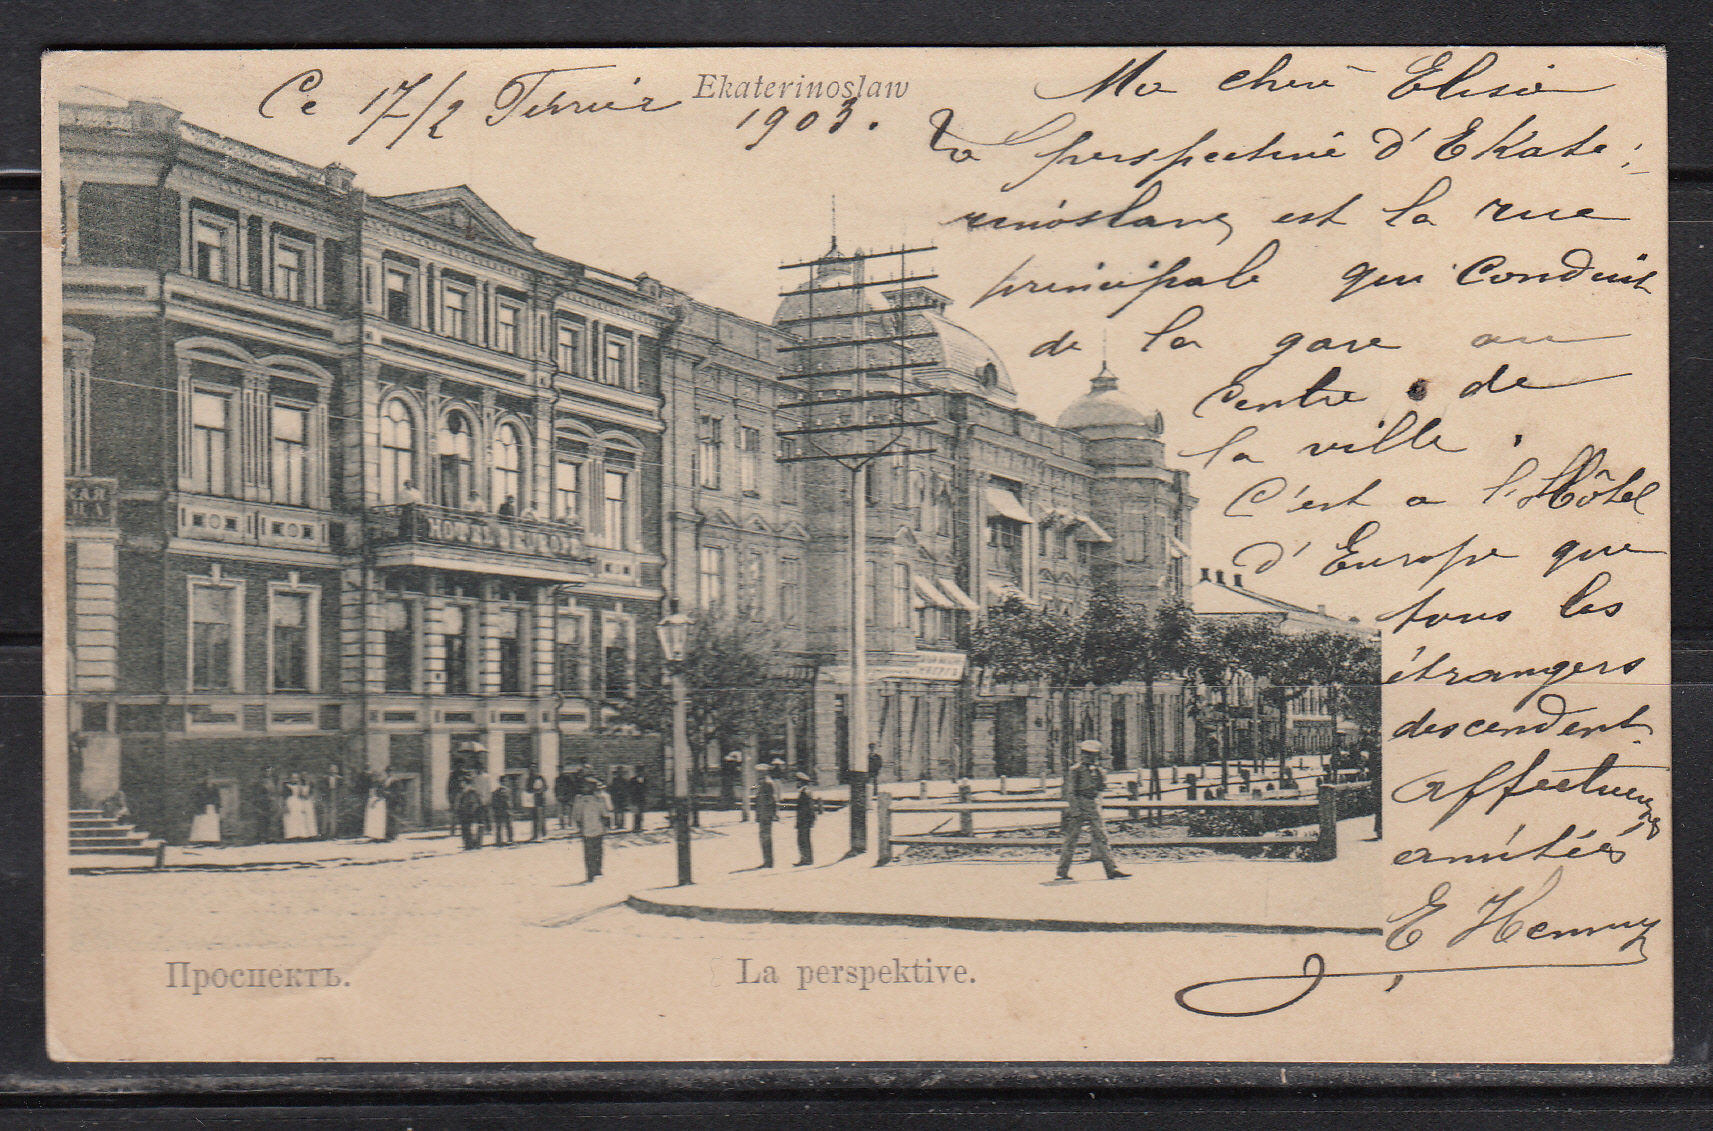 Ekaterinoslaw
Ce 17/2 Février
1903.
Ma chère Elisa
La perspective d'Ekate-
rinoslaw, est la rue
principale qui conduit
de la gare au
centre de
la ville.
C'est a l'Hôtel
d'Europe que
tous les
étrangers
descendent.
affectueuses
amitiés
E
HOTEL D'EUROPE
Проспектъ.
La perspektive.